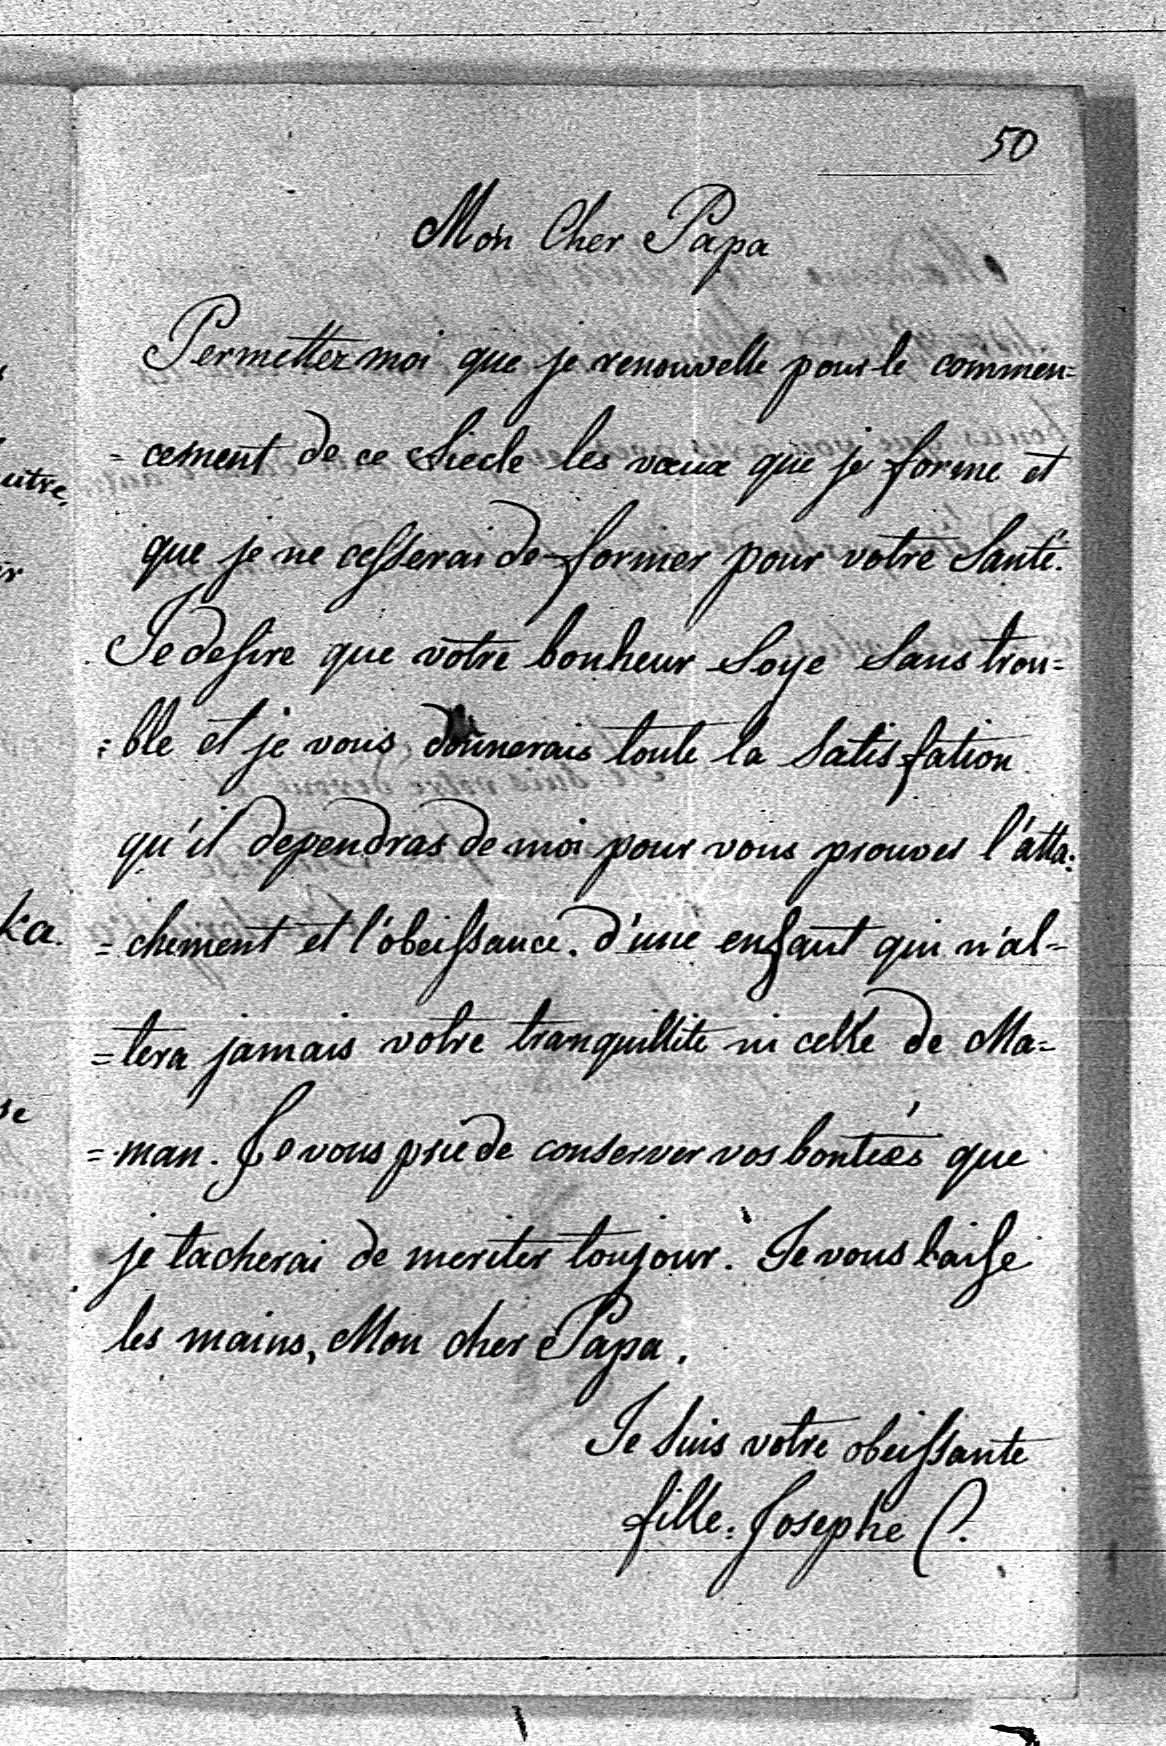 50
Mon Cher Papa
Permettez moi que je renouvelle pour le commen=
= cement de ce Siecle les vœux que je forme et
que je ne cesserai de former pour votre Santé.
Je desire que votre bonheur Soye Sans trou=
= ble et je vous donnerais toute la Satisfation
qu'il dependras de moi pour vous prouver l'atta=
= chement et l'obeissance. d'une enfant qui n'al=
= tera jamais votre tranquillite ni celle de Ma=
= man. Je vous prie de conserver vos bontés que
je tacherai de meriter toujour. Je vous baise
les mains, Mon cher Papa.
Je Suis votre obeissante
fille. Josephe C.
utre,
ka.